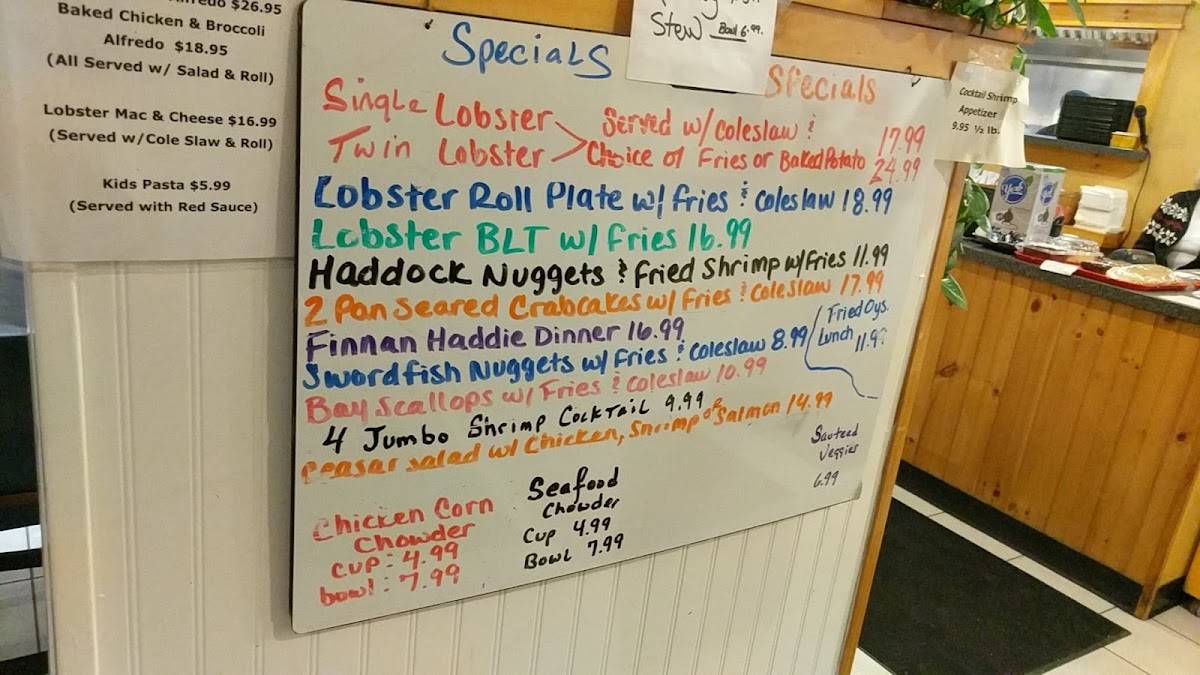 $26.95
Baked Chicken & Broccoli
Alfredo $18.95
(All Served w/ Salad & Roll)
Lobster Mac & Cheese $16.99
(Served w/Cole Slaw & Roll)
Kids Pasta $5.99
(Served with Red Sauce)
Stew Bowl 6.99.
Specials Specials
Single Lobster Served w/coleslaw & 17.99
Twin Lobster Choice of Fries or Baked Potato 24.99
Lobster Roll Plate w/ fries & coleslaw 18.99
Lobster BLT w/ Fries 16.99
Haddock Nuggets & Fried Shrimp w/fries 11.99
2 Pan Seared Crabcakes w/ Fries & coleslaw 17.99
Finnan Haddie Dinner 16.99
Swordfish Nuggets w/ Fries & coleslaw 8.99
Fried Oys.
Lunch 11.99
Bay Scallops w/ Fries & coleslaw 10.99
4 Jumbo Shrimp Cocktail 9.99
Ceasar salad w/ Chicken, Shrimp or Salmon 14.99
Sauteed
Veggies
6.99
Chicken Corn
Chowder
cup: 4.99
bowl: 7.99
Seafood
Chowder
Cup 4.99
Bowl 7.99
Cocktail Shrimp
Appetizer
9.95 ½ lb.